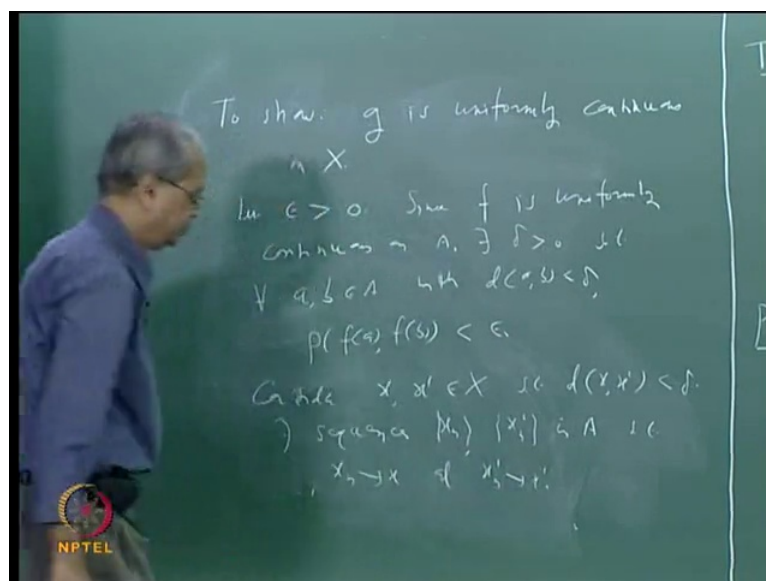 To show: g is uniformly continuous
on X.
Let ε > 0. Since f is uniformly
continuous on A, ∃ δ > 0 s.t.
∀ a, b ∈ A with d(a, b) < δ,
ρ(f(a), f(b)) < ε.
Consider x, x' ∈ X s.t. d(x, x') < δ.
∃ sequences {xₙ}, {xₙ'} in A s.t.
xₙ → x & xₙ' → x'.
T
NPTEL